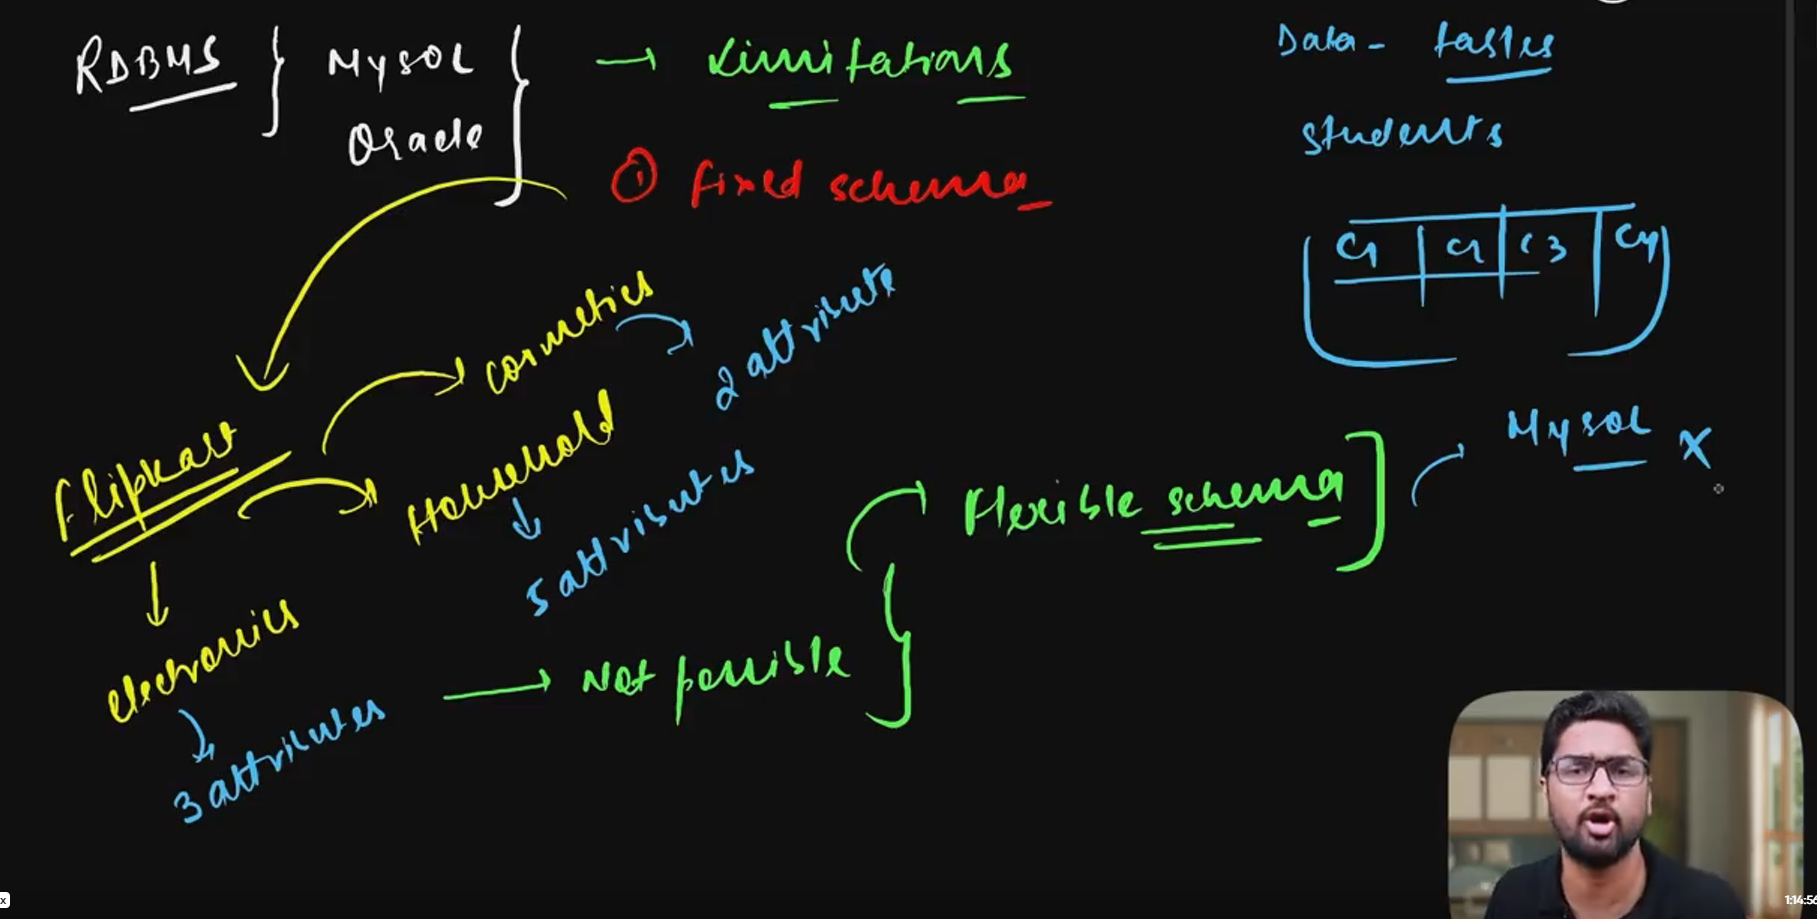 RDBMS } MySQL } → Limitations
Oracle
① fixed schema
Data - tables
students
C1 | C2 | C3 | C4
Flipkart
cosmetics
2 attribute
Household
5 attributes
electronics
3 attributes
→ Not possible
Flexible schema
MySQL X
x
1:14:56